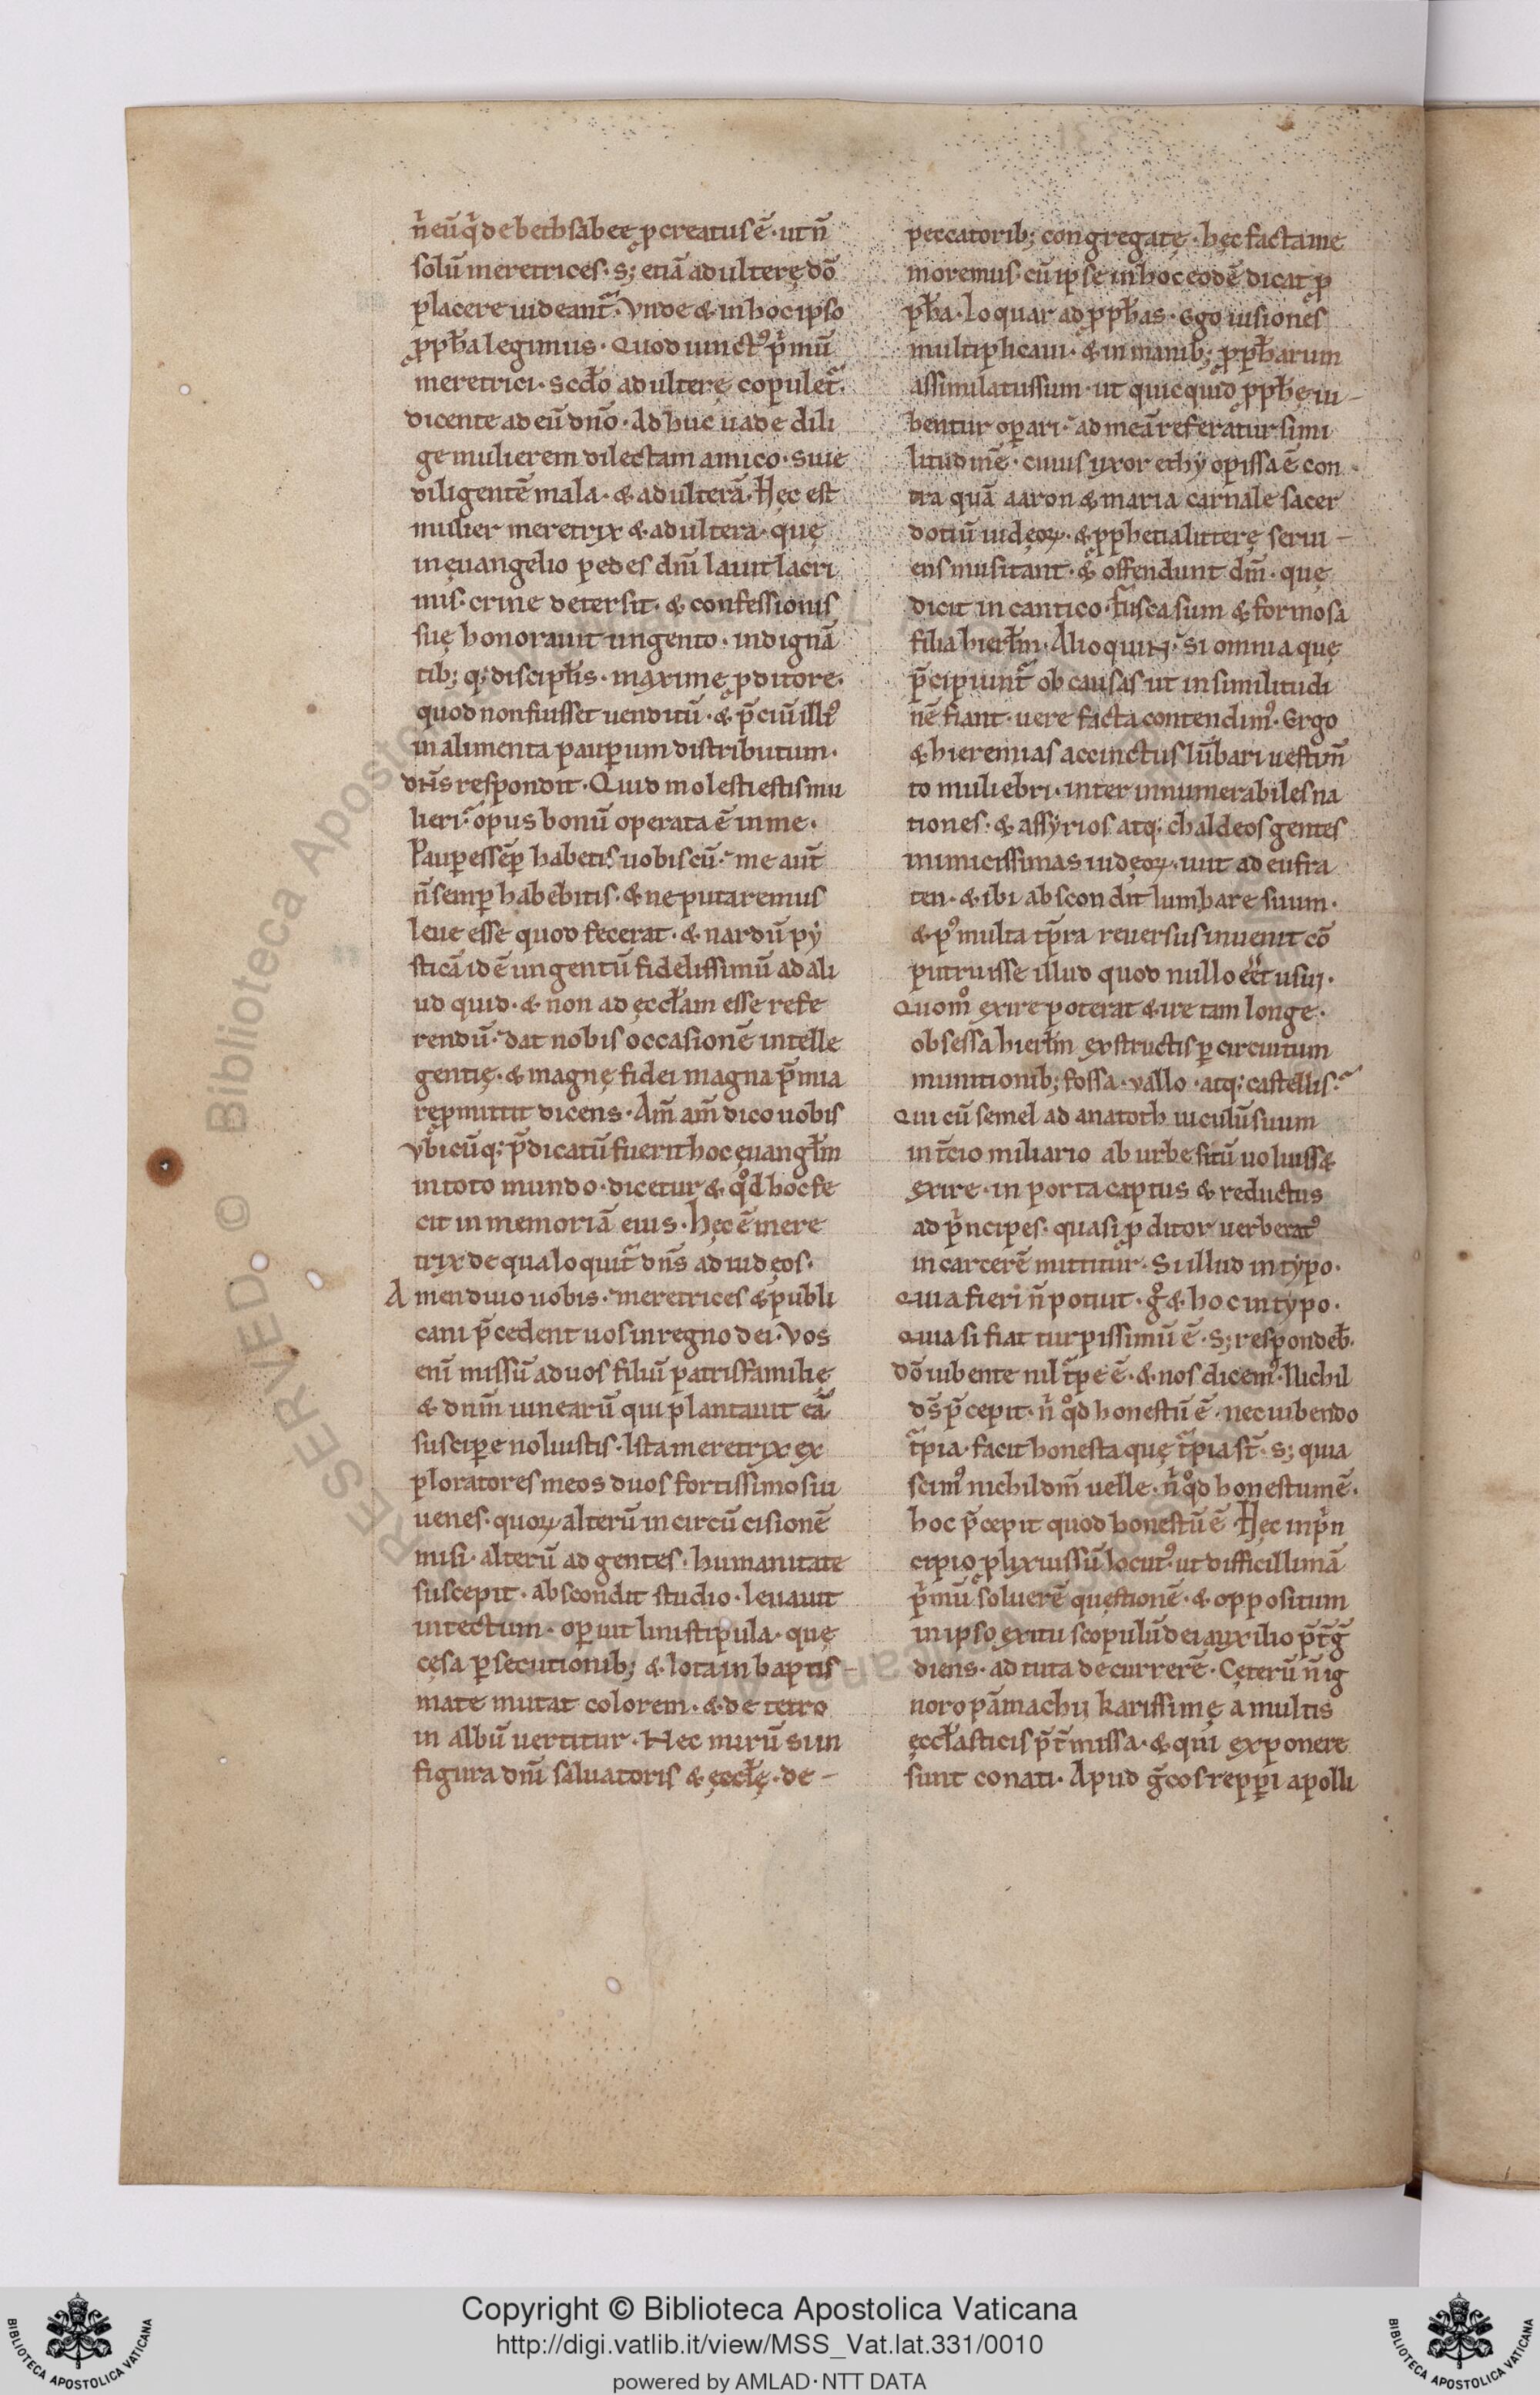 n̉ eũ q̉ de bethsabee ꝓcreatus ẽ · ut ñ
solũ meretrices · s; etiã adulterę dõ
placere uideant᷑ · Vnde & in hoc ipso
ꝓpħa legimus · Quod iunct᷒ p̉mũ
meretrici · scdo adulterę copulet᷑ ·
dicente ad eũ dño · Adhuc uade dili
ge mulierem dilectam amico · suie
diligentẽ mala · & adulterã · Hęc est
mulier meretrix & adultera · quę
in euangelio pedes dñi lauit lacri
mis · crine detersit · & confessionis
suę honorauit ungento · indignã
tib; q; discipłis · maxime ꝓditore ·
quod non fuisset uenditũ · & p̃ciũ illi᷒
in alimenta pauꝑum distributum ·
dñs respondit · Quid molesti estis mu
lieri · opus bonũ operata ẽ in me ·
Pauꝑes semꝑ habetis uobiscũ · me aut̃
ñ semꝑ habebitis · & ne putaremus
leue esse quod fecerat · & nardũ py
sticã id ẽ ungentũ fidelissimũ ad ali
ud quid · & non ad ęccłam esse refe
rendũ · dat nobis occasionẽ intelle
gentię · & magnę fidei magna p̃mia
repmittit dicens · Am̃ am̃ dico uobis
Vbicũq; p̃dicatũ fuerit hoc euangłm
in toto mundo · dicetur & qd̊ hoc fe
cit in memoriã eius · hęc ẽ mere
trix de qua loquit᷑ dñs ad iudęos ·
Amen dico uobis · meretrices & publi
cani p̃cedent uos in regno dei · Vos
enĩ missũ ad uos filiũ patrisfamilię
& dñm uinearũ qui plantauit eã
susciꝑe noluistis · Ista meretrix ex
ploratores meos duos fortissimos iu
uenes · quoꝝ alterũ in circũcisionẽ
misi · alterũ ad gentes · humanitate
suscepit · abscondit studio · leuauit
in tectum · oꝑuit lini stipula · quę
cęsa ꝑsecutionib; & lota in baptis-
mate mutat colorem · & de tetro
in albũ uertitur · Nec mirũ si in
figura dñi saluatoris & ęccłę · de-
peccatorib; congregatę · hęc facta me
moremus · cũ ipse in hoc eodẽ dicat ꝓ
pħa · Loquar ad ꝓpħas · Ego uisiones
multiplicaui · & in manib; ꝓpħarum
assimilatus sum · ut quicquid ꝓpħę iu-
bentur oꝑari · ad meã referatur simi
litudinẽ · cuius uxor ethyopissa ẽ con
tra quã aaron & maria carnale sacer
dotiũ iudęoꝝ · & ꝓphetia litterę serui-
ens musitant · & offendunt dñm · quę
dicit in cantico · fusca sum & formosa
filia hierłm · Alioquin · si omnia quę
p̃cipiunt᷑ ob causas ut in similitudi
nẽ fiant · uere facta contendim᷒ · Ergo
& hieremias accinctus lũbari uestim̃
to muliebri · inter innumerabiles na
tiones · & assyrios atq; chaldeos gentes
inimicissimas iudęoꝝ · iuit ad eufra
ten · & ibi abscondit lumbare suum ·
& p᷒ multa tp̃ra reuersus inuenit cõ
putruisse illud quod nullo eẽt usui ·
Quom̊ exire poterat & ire tam longe ·
obsessa hierłm exstructis ꝑ circuitum
munitionib; fossa · uallo · atq; castellis ·
Qui cũ semel ad anatoth uiculũ suum
in t̃cio miliario ab urbe sitũ uoluiss&
exire · in porta captus & reductus
ad p̉ncipes · quasi ꝓditor uerberat᷒
in carcerẽ mittitur · Si illud in typo ·
Quia fieri ñ potuit · g̊ & hoc in typo ·
Quia si fiat turpissimũ ẽ · S; respondeb̃ ·
dõ iubente nil t᷑pe ẽ · & nos dicem᷒ · Nichil
ds̃ p̃cepit · n̉ qd̊ honestũ ẽ · nec iubendo
t᷑pia · facit honesta quę t᷑pia st̃ · s; quia
scim᷒ nichil dñm uelle · n̉ qd̊ honestum ẽ ·
hoc p̃cepit quod honestũ ẽ · Hęc in p̉n
cipio ꝓlixius sũ locut᷒ · ut difficillimã
p̉mũ soluerẽ questionẽ · & oppositum
in ipso exitu scopulũ dei auxilio p̃t̃g̃
diens · ad tuta decurrerẽ · Cęterũ ñ ig
noro pãmachij karissimę a multis
ęccłasticis p̃t̃missa · & qui exponere
sunt conati · Apud g̃cos repꝑi apolli
Copyright © Biblioteca Apostolica Vaticana
http://digi.vatlib.it/view/MSS_Vat.lat.331/0010
powered by AMLAD·NTT DATA